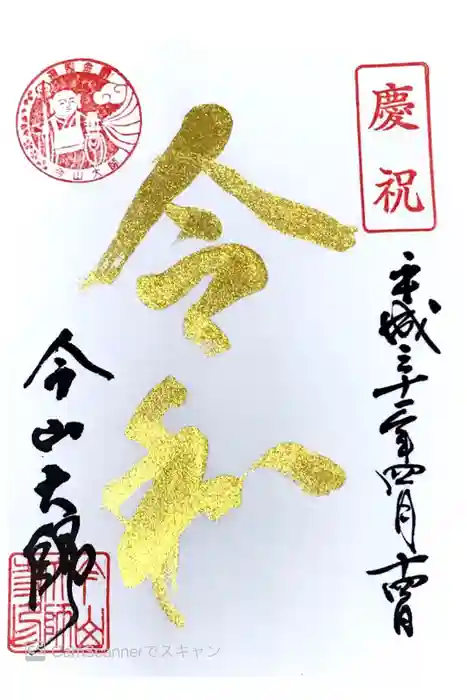 慶祝
平成三十一年四月十四日
令和
今山大師
今山大師
CamScannerでスキャン